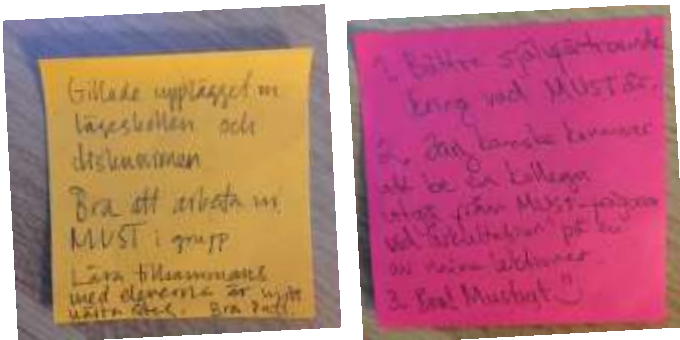 Gillade upplägget m
lägeskollen och
diskussionen
Bra att arbeta m
MUST i grupp
Lära tillsammans
med eleverna är mitt
nästa steg. Bra
1. Bättre självförtroende
kring vad MUST är.
2. Jag kanske kommer
att be en kollega
utgå från MUST-frågorna
vid på en
av mina lektioner.
3. Bra! Mustigt :)